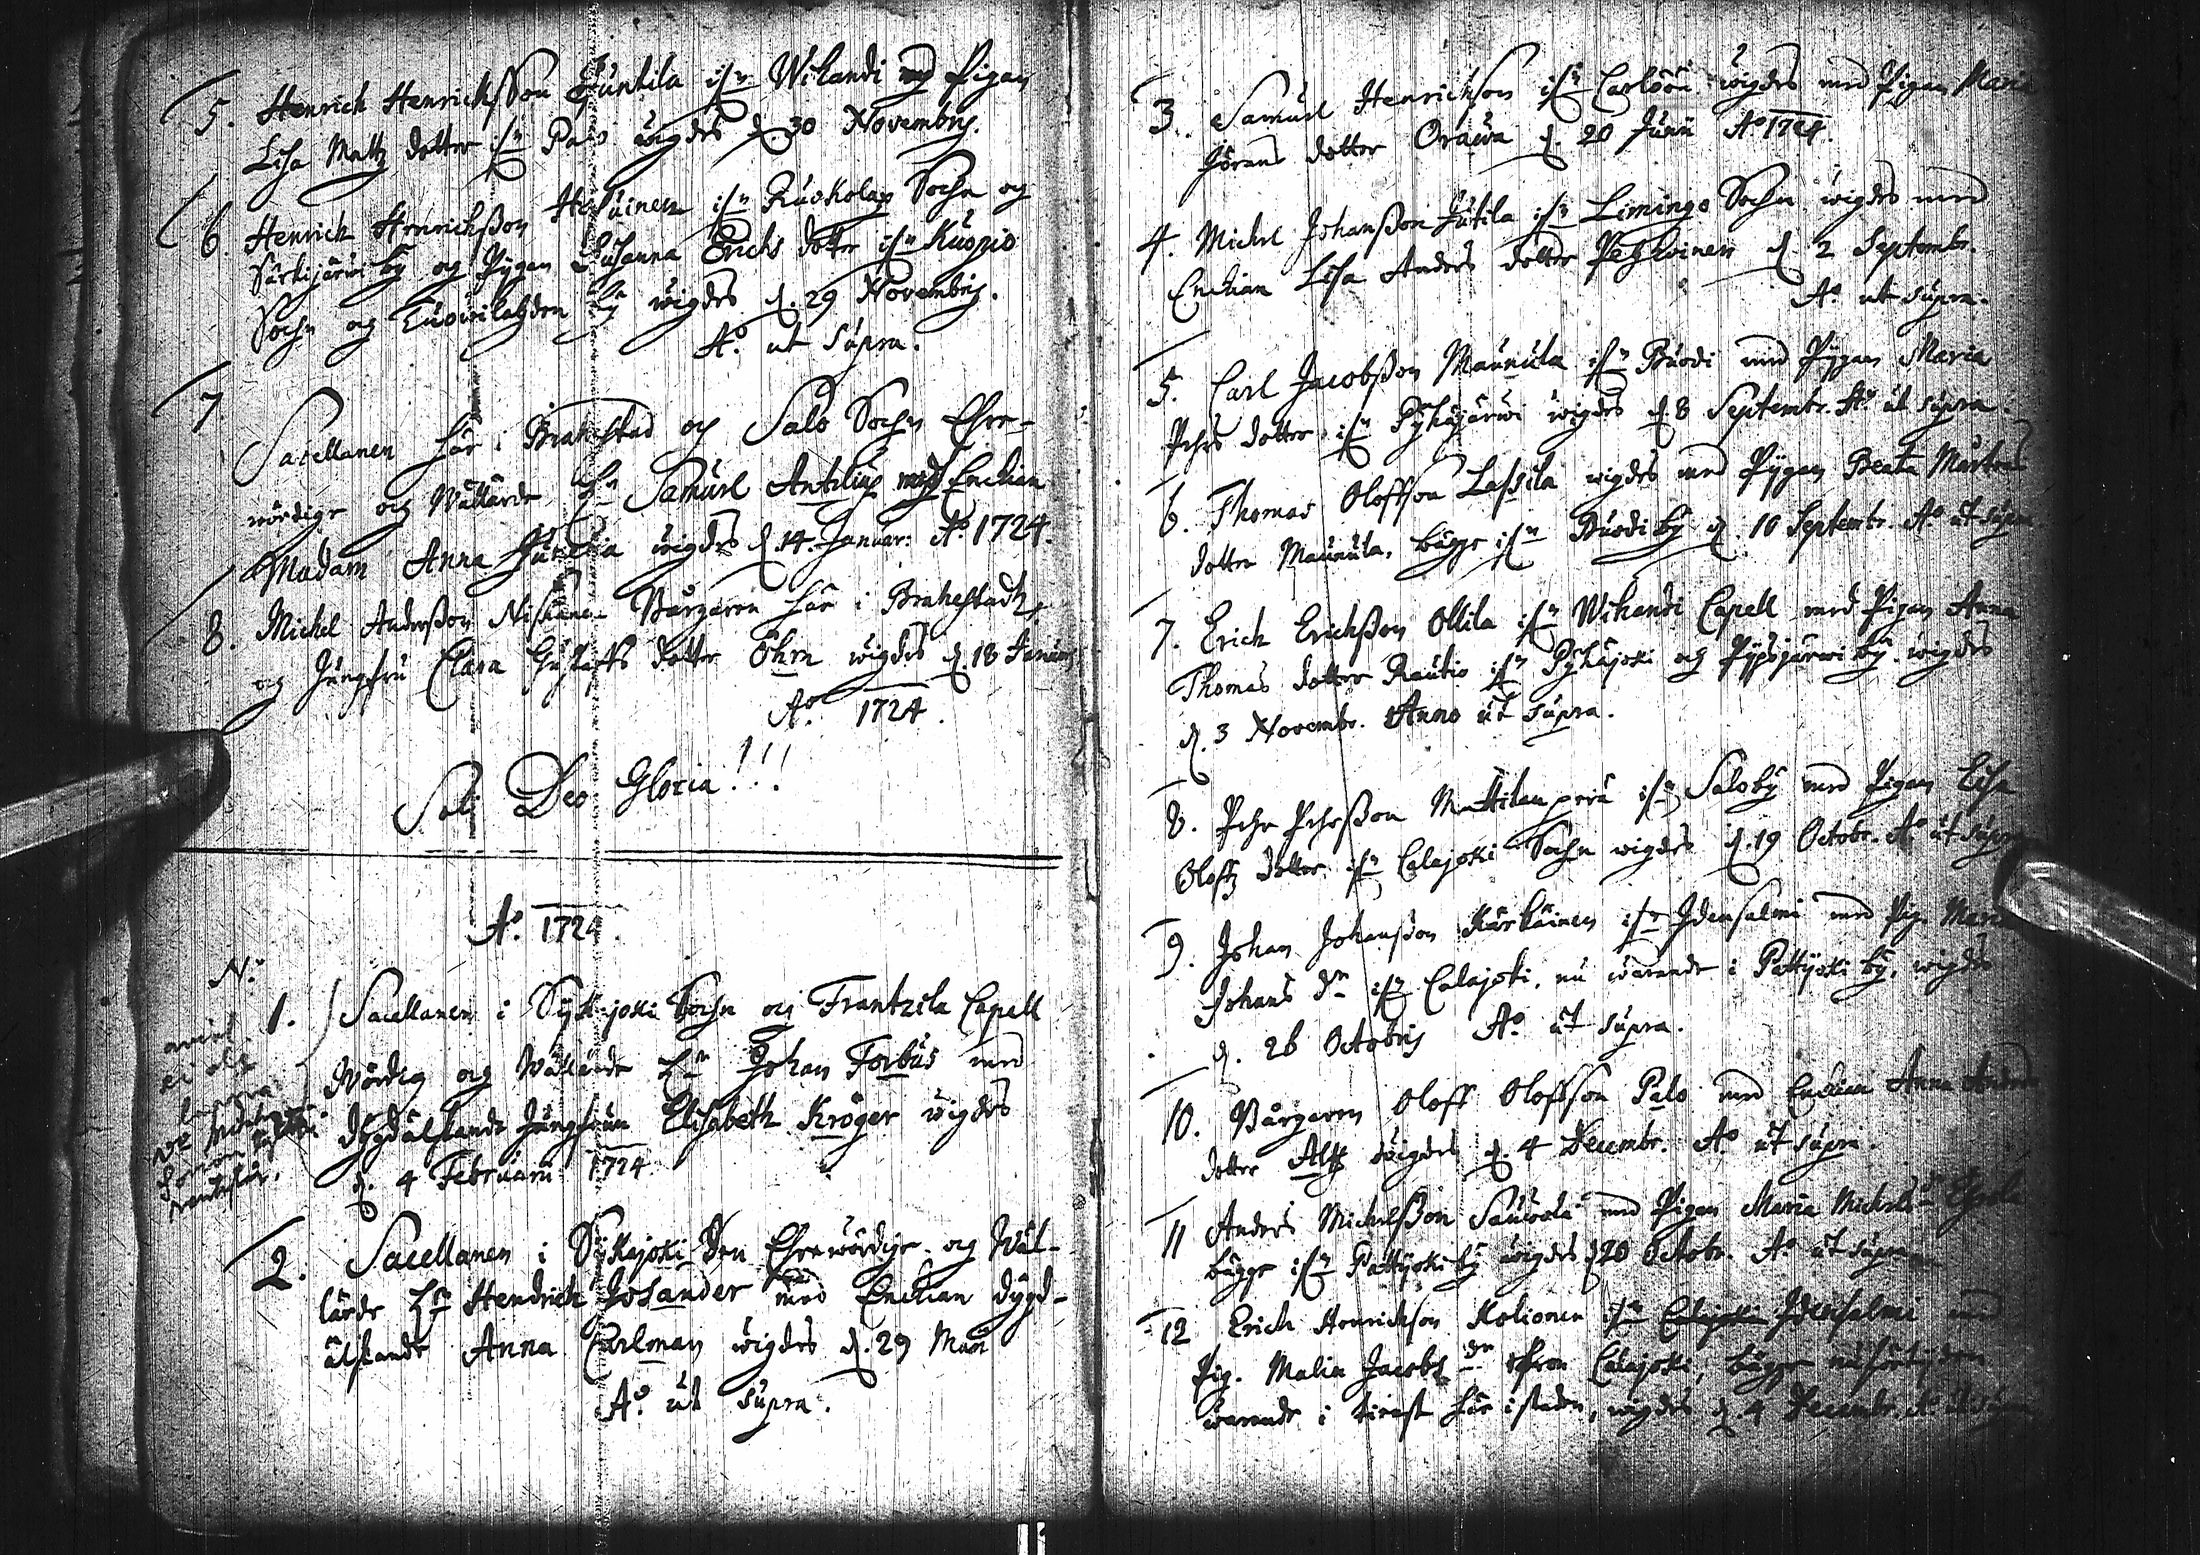 5. Henrich Henrichsson Juntila ifrn Wihandi med Pigan
Lisa Matz dotter ifrn Pavo wigdes d. 30 Novembris.
6. Henrich Henrichsson ifrn Ruokolax Sochn og
Särkijärwi by og Pigan Susanna Erichs dotter ifrn Kuopio
Sochn og by wigdes d. 29 Novembris.
Ao. ut supra.
7 Sacellanen här i Brahestad og Salo Sochn Ehre-
wördige og Wällärde Hr Samuel Antilius med Enckian
Madam Anna wigdes d. 14. Januar: Ao. 1724.
8. Michel Andersson Borgaren här i Brahestadh,
og Jungfru Clara Gustafs dotter Öhrn wigdes d. 18 Januar
Ao. 1724.
Soli Deo Gloria!!!
Ao. 1724.
No.
1. Sacellanen i Sijkajoki Sochn og Frantzila Capell
Wördig og Wällärde Hr Johan Forbus med
dygdälskande Jungfrun Elisabeth Kröger wigdes
d. 4 Februarii 1724
2. Sacellanen i Sijkajoki Den Ehrewördige og Wäl-
lärde Hr Hendrich Josander med Enckian dygd-
älskande Anna Carlonan wigdes d. 29 Marti
Ao. ut supra.
3. Samuel Henrichson ifrn Carlöön wigdes med Pigan Maria
Jörans dotter Orawa d. 20 Junii Ao 1724.
4. Michel Johansson Jutila ifrn Limingo Sochn wigdes med
Enckian Lisa Anders dotter d. 2 Septembr.
Ao. ut supra.
5. Carl Jacobsson Maunula ifrn Buodi med Pygan Maria
Pehrs dotter ifrn Pyhäjärwi wigdes d. 8 Septembr. Ao ut supra.
6. Thomas Olofsson Lassila wigdes med Pygan Beata Mårtens
dotter Maunula, bägge ifrn Buodi by d. 10 Septembr. Ao ut supra
7. Erich Erichsson Ollila ifrn Wihandi Capell med Pigan Anna
Thomas dotter Rautio ifrn Pyhäjoki og by. wigdes
d. 3 Novembr. Anno ut supra.
8. Pehr Pehrsson Mattilanperä ifrn Saloby med Pigan Lisa
Olofz dotter ifrn Calajoki Sochn wigdes d. 19 Octobr. Ao ut supra
9. Johan Johansson Kärkäinen ifrn Idensalmi med Pig. Maria
Johans dr ifrn Calajoki, nu warande i Pattijoki by, wigdes
d. 26 Octobris Ao. ut supra.
10. Borgaren Oloff Olofsson Palo med Enckian Anna Anders
dotter wigdes d. 4 Decembr. Ao. ut supra.
11 Anders Michelsson Sauwola med Pigan Maria Michels dr
bägge ifrn Pattijoki by wigdes d 20 Octobr. Ao. ut supra
12 Erich Henrichson ifrn Calajoki Idensalmi med
Pig. Malin Jacobs dr ifron Calajoki, bägge
warande i tienst här i staden, wigdes d. 4 Decembr. Ao ut supra